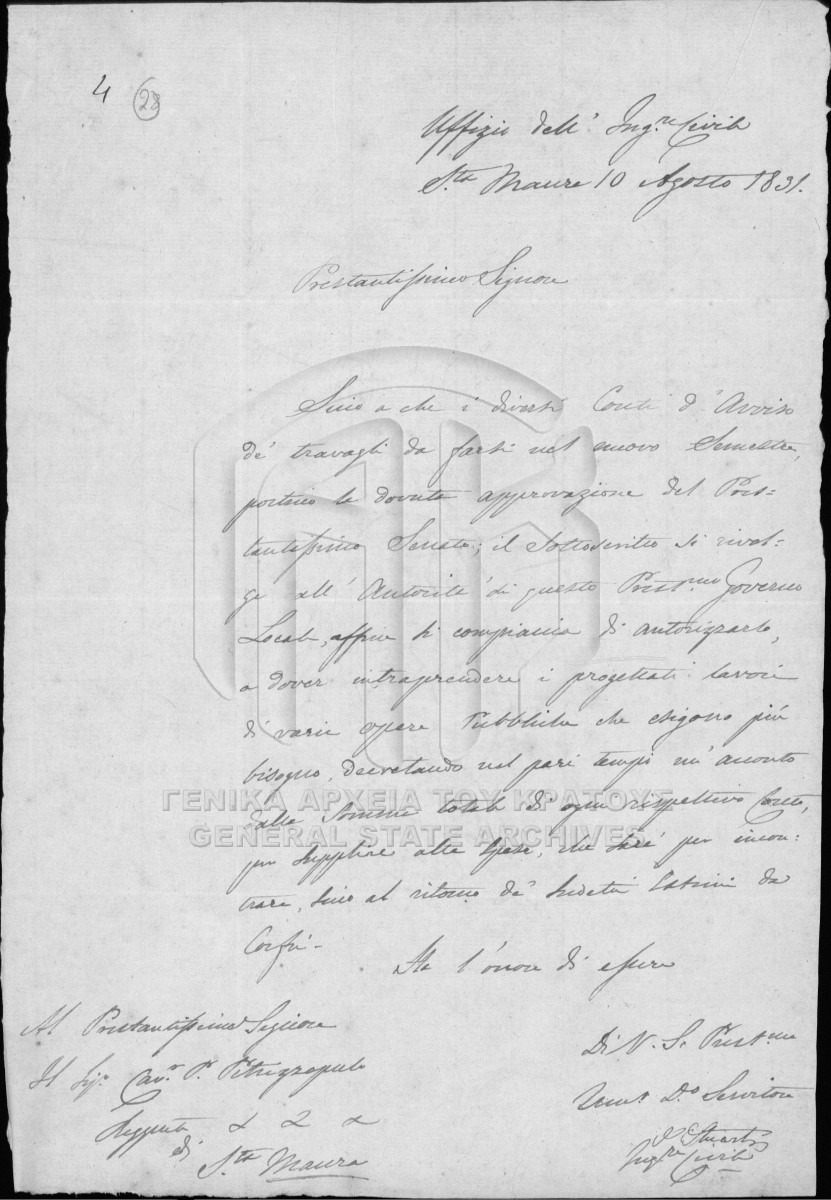 4 28
Uffizio dell' Ing.re Civile
S.ta Maura 10 Agosto 1831.
Prestantissimo Signore
Sino a che i diversi Conti d'Avviso
de' travagli da farsi nel nuovo Semestre,
portino la dovuta approvazione del Pres=
tantissimo Senato; il Sottoscritto si rivol=
ge all' Autorità di questo Prest.mo Governo
Locale, affine si compiaccia di autorizzarlo,
a dover intraprendere i progettati lavori
di varie opere Pubbliche che esigono più
bisogno, decretando nel pari tempo un' acconto
dalle Somme totali di ogni rispettivo Conto,
ΓΕΝΙΚΑ ΑΡΧΕΙΑ ΤΟΥ ΚΡΑΤΟΥΣ
GENERAL STATE ARCHIVES
per supplire alle spese, che sarà per incon=
trare, sino al ritorno de' sudetti da
Corfù.
Ho l'onore di essere
Al Prestantissimo Signore
Il Sig.r Cav.r P. Petrizzopulo
Reggente & & &
di S.ta Maura
Di V. S. Prest.ma
Um.o D.o Servitore
Stuart
Ing.re Civile